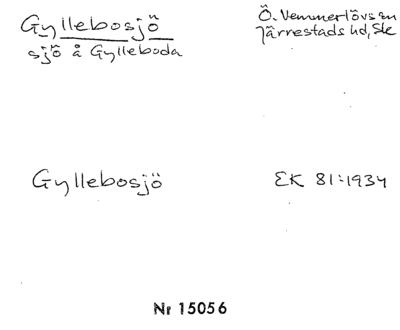 Gyllebosjö
Ö. Vemmerlövs sn
sjö å Gylleboda
Järrestads hd, Ske
Gyllebosjö
EK 81:1934
Nr 15056